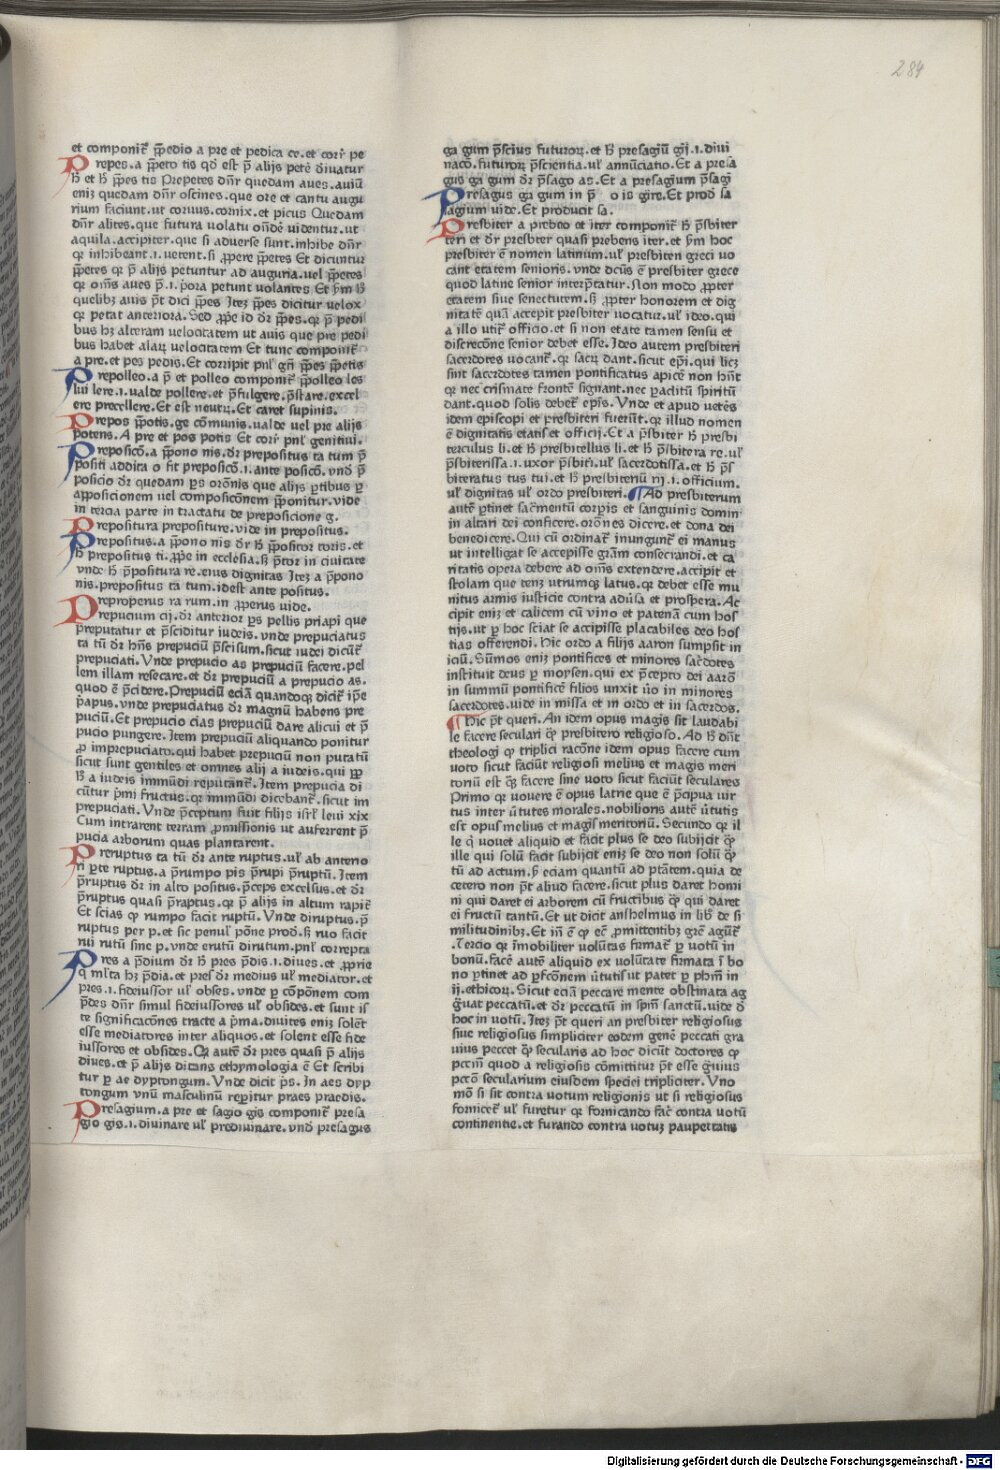 284
et componit᷑ p̄pedio a pre et pedica ce. et cor͛ pe
Prepes. a p̄peto tis qd̓ est p̄ alijs petē d̓iuatur
h̄ et h̄ p̄pes tis Prepetes dn̄r quedam aues. auiū
eniz quedam dn̄r oscines. que ore et cantu augu
rium faciunt. ut coruus. cornix. et picus Quedam
dn̄r alites. que futura uolatu on̄dē videntur. ut
aquila. accipiter. que si aduerse sunt. inhibe dn̄r
qr inhibeant .i. uetent. si ꝓpere p̄petes Et dicuntur
p̄petes qr p̄ alijs petuntur ad auguria. uel p̄petes
qr om̄s aues p̄ .i. pora petunt volantes. Et ẜm h̄
quelibꝫ auis p̄t dici p̄pes Itez p̄pes dicitur velox
qr petat anteriora. Sed ꝓpe id dr̄ p̄pes. qr p̄ pedi
bus hꝫ alteram velocitatem ut auis que pre pedi
bus habet alaꝝ velocitatem Et tunc componit᷑
a pre. et pes pedis. Et corripit pnl̄ gn̄ p̄pes p̄petis
Prepolleo. a p̄ et polleo componit᷑ p̄polleo les
lui lere .i. ualde pollere. et p̄fulgere. p̄stare. excel
lere precellere. Et est neutꝝ. Et caret supinis.
Prepos p̄potis. ge cōmunis. ualde uel pre alijs
potens. A pre et pos potis Et cor͛ pnl̄ genitiui.
Preposicō. a p̄pono nis. dr̄ prepositus ta tum p̄
positi addita o fit preposicō .i. ante posicō. vnd̓ p̄
posicio dr̄ quedam ꝑs orōnis que alijs ꝑtibus ꝑ
apposicionem uel composicōnem p̄ponitur. vide
in tercia parte in tractatu de preposicione g.
Prepositura prepositure. vide in prepositus.
Prepositus. a p̄pono nis dr̄ h̄ p̄positor toris. et
h̄ prepositus ti. ꝓpe in ecclesia. ẜ p̄tor in ciuitate
vnde h̄ p̄positura re. eius dignitas Itez a p̄pono
nis. prepositus ta tum. idest ante positus.
Preproperus ra rum. in ꝓperus uide.
Prepucium cij. dr̄ anterior ꝑs pellis priapi que
preputatur et p̄sciditur iudeis. vnde prepuciatus
ta tū dr̄ hn̄s prepuciū p̄scisum. sicut iudei dicūt᷑
prepuciati. Vnde prepucio as prepuciū facere. pel
lem illam resecare. et dr̄ prepuciū a prepucio as.
quod ē p̄cidere. Prepuciū eciā quandoqꝫ dicit᷑ ip̄e
p̄apus. vnde prepuciatus dr̄ magnū habens pre
puciū. Et prepucio cias prepuciū dare alicui et p̄
pucio pungere. Item prepuciū aliquando ponitur
ꝓ imprepuciato. qui habet prepuciū non putatū
sicut sunt gentiles et omnes alij a iudeis. qui ꝓp
h̄ a iudeis inmūdi reputant᷑. Item prepucia di
cūtur p̄mi fructus. qr inmūdi dicebant᷑. sicut im
prepuciati. Vnde p̄ceptum fuit filijs isrl̄ leui xix
Cum intrarent terram ꝓmissionis ut aufferrent p̄
pucia arborum quas plantarent.
Preruptus ta tū dr̄ ante ruptus. ul̄ ab anterio
ri ꝑte ruptus. a p̄rumpo pis p̄rupi p̄ruptū. Item
p̄ruptus dr̄ in alto positus. p̄ceps excelsus. et dr̄
p̄ruptus quasi p̄raptus. qr p̄ alijs in altum rapit᷑
Et scias qꝫ rumpo facit ruptū. Vnde diruptus. p̄
ruptus per p. et sic penul̓ pōne prod̓. ẜ ruo facit
rui rutū sine p. vnde erutū dirutum. pnl̄ correpta
Pres a p̄dium dr̄ h̄ pres p̄dis .i. diues. et ꝓprie
q̇ ml̄ta hꝫ p̄dia. et pres dr̄ medius ul̄ mediator. et
pres .i. fideiussor ul̄ obses. vnde ꝑ cōpōnem com
p̄des dn̄r simul fideiussores ul̄ obsides. et sunt is
te significacōnes tracte a p̄ma. diuites eniz solēt
esse mediatores inter aliquos. et solent esse fide
iussores et obsides. Qꝛ autē dr̄ pres quasi p̄ alijs
diues. et p̄ alijs ditans ethymologia ē Et scribi
tur ꝑ ae dyptongum. Vnde dicit p̄s. In aes dyp
tongum vnū masculinū reꝑitur praes praedis.
Presagium. a pre et sagio gis componit᷑ presa
gio gis .i. diuinare ul̄ prediuinare. vnd̓ presagus
ga gum p̄scius futuroꝝ. et h̄ presagiū gij .i. diui
nacō. futuroꝝ p̄scientia. ul̄ annūciatio. Et a presa
gus ga gum dr̄ p̄sago as. Et a presagium p̄sagi
Presagus ga gum in p̄ o is gire. Et prod̓ sa
sagium uide. Et producit sa.
Presbiter a prebeo et iter componit᷑ h̄ p̄sbiter
teri et dr̄ presbiter quasi prebens iter. et ẜm hoc
presbiter ē nomen latinum. ul̄ presbiteri greci vo
cant etatem senioris. vnde dcūs ē presbiter grece
quod latine senior interp̄tatur. Non modo ꝓpter
etatem siue senectutem. ẜ ꝓpter honorem et dig
nitatē quā accepit presbiter uocatur. ul̄ ideo. qui
a illo utit᷑ officio. et si non etate tamen sensu et
discrecōne senior debet esse. Ideo autem presbiteri
sacerdotes uocant᷑. qr sacꝝ dant. sicut ep̄i. qui licꝫ
sint sacerdotes tamen pontificatus apicē non hn̄t
qr nec crismate frontē signant. nec ꝑaclitū spiritū
dant. quod solis debet᷑ ep̄is. Vnde et apud uetēs
idem episcopi et presbiteri fuerūt. qr illud nomen
ē dignitatis etatis et officij. Et a p̄sbiter h̄ presbi
terculus li. et h̄ presbitellus li. et h̄ p̄sbitera re. ul̄
p̄sbiterissa .i. uxor p̄sbiti. ul̄ sacerdotissa. et h̄ p̄s
biteratus tus tui. et h̄ presbiteriū rij .i. officium.
ul̄ dignitas ul̄ ordo presbiteri. ¶ Ad presbiterum
autē ꝑtinet sac̄mentū corꝑis et sanguinis domin
in altari dei conficere. orōnes dicere. et dona dei
benedicere. Qui cū ordinat᷑ inungunt᷑ ei manus
ut intelligat se accepisse gr̄am consecrandi. et ca
ritatis opera debere ad om̄s extendere. accipit et
stolam que tenꝫ utrumqꝫ latus. qr debet esse mu
nitus armis iusticie contra adūsa et prospera. Ac
cipit eniz et calicem cū vino et patenā cum hos
tijs. ut ꝑ hoc sciat se accepisse placabiles deo hos
tias offerendi. Hic ordo a filijs aaron sumpsit in
iciū. Sūmos eniz pontifices et minores sac̄dotes
instituit deus ꝑ moysen. qui ex p̄cepto dei aarō
in summū pontificē filios unxit ūo in minores
sacerdotes. uide in missa et in ordo et in sacerdos.
¶ Hic p̄t queri. An idem opus magis sit laudabi
le facere seculari qꝫ presbitero religioso. Ad h̄ dn̄t
theologi qꝫ triplici racōne idem opus facere cum
uoto sicut faciūt religiosi melius et magis meri
toriū est qꝫ facere sine uoto sicut faciūt seculares
Primo qr vouere ē opus latrie que ē p̄cipua uir
tus inter ūtutes morales. nobilioris autē ūtutis
est opus melius et magis meritoriū. Secundo qr il
le q̇ uouet aliquid et facit plus se deo subijcit qꝫ
ille qui solū facit subijcit eniz se deo non solū qꝫ
tū ad actum. ẜ eciam quantū ad ptātem. quia de
cetero non p̄t aliud facere. sicut plus daret homi
ni qui daret ei arborem cū fructibus qꝫ qui daret
ei fructū tantū. Et ut dicit anshelmus in lib̓ de si
militudinibꝫ. Et in̄ ē qꝫ ec̄ ꝓmittentibꝫ gr̄e agūt᷑
. Tercio qr īmobiliter volūtas firmat᷑ ꝑ uotū in
bonū. facē autē aliquid ex volūtate firmata ī bo
no ꝑtinet ad ꝑfcōnem ūtutis ut patet ꝑ phm̄ in
ij. ethicoꝝ. Sicut eciā peccare mente obstinata ag
ḡuat peccatū. et dr̄ peccatū in spm̄ sanctū. vide d̓
hoc in uotū. Itez p̄t queri an presbiter religiosus
siue religiosus simpliciter eodem genē peccati gra
uius peccet qꝫ secularis ad hoc dicūt doctores qꝫ
pccm̄ quod a religiosis cōmittitur p̄t esse ḡuius
pccō secularium eiusdem speciei tripliciter. Vno
mō si sit contra uotum religionis ut si religiosus
fornicet᷑ ul̄ furetur qr fornicando fac̄ contra uotū
continentie. et furando contra uotuꝫ paupertatis
Digitalisierung gefördert durch die Deutsche Forschungsgemeinschaft - DFG